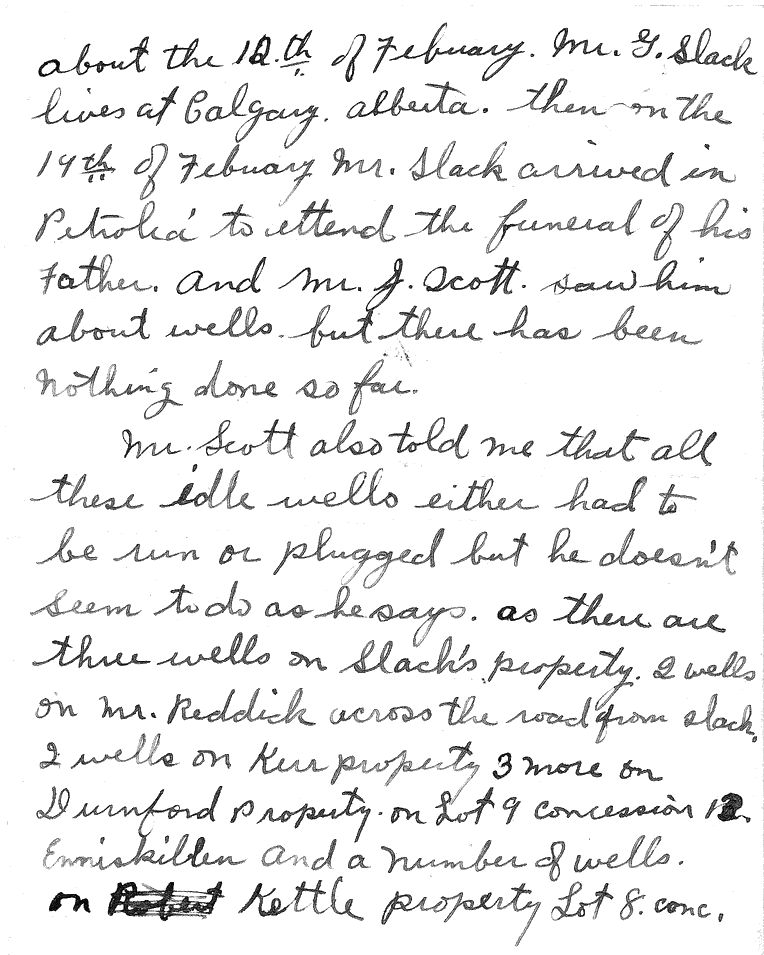 about the 12.th of Febuary. Mr. G. Slack
lives at Calgary. alberta. then on the
14th of Febuary Mr. Slack arrived in
Petrolia to attend the funeral of his
Father. and Mr. J. Scott. saw him
about wells. but there has been
nothing done so far.
Mr. Scott also told me that all
these idle wells either had to
be run or plugged but he doesn't
seem to do as he says. as there are
three wells on Slack's property. 2 wells
on Mr. Reddick across the road from slack.
2 wells on Kerr property 3 more on
Durnford Property. on Lot 9 concession 12.
Enniskillen and a number of wells.
on Robert Kettle property Lot 8. conc.